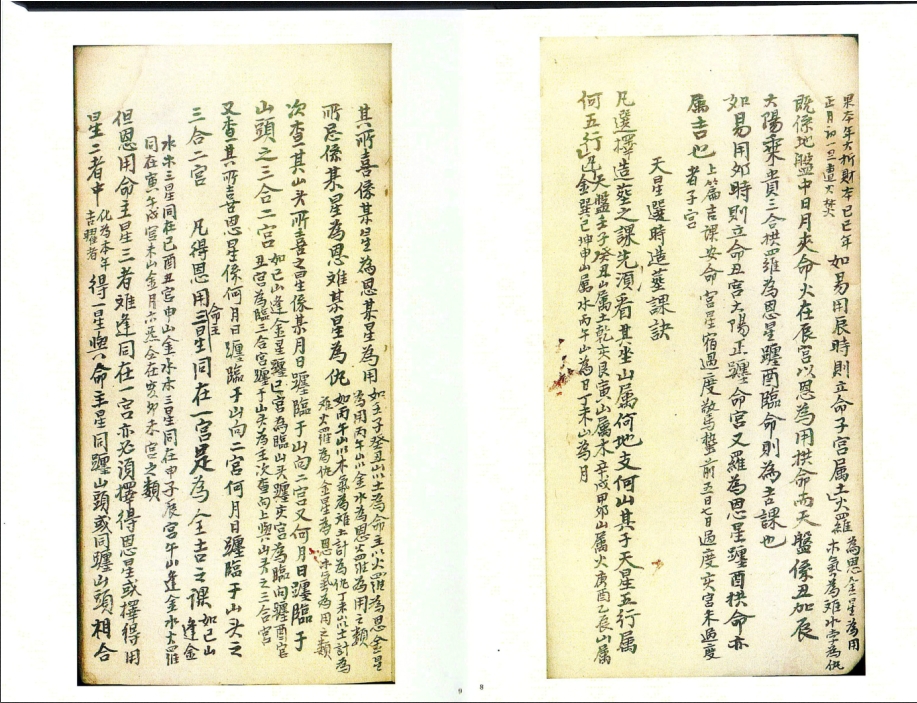 果本年大折財本己巳年
正月初一旦遭火焚
如易用辰時則立命子宮属土火羅
為恩金星為用
木氣為难水孛為仇
既係地盤中日月夾命火在辰宮以恩為用拱命而天盤係丑加辰
太陽乘貴三合拱羅為恩星躔酉臨命則為吉課也
如易用卯時則立命丑宮太陽正躔命宮又羅為恩星躔酉拱命亦
属吉也
上篇吉課安命
者子宮
宮星宿過二度驚蟄前五日七日過度亥宮未過度
天星選時造塟課訣
凡選擇造塟之課先須看其坐山属何地支何山其子天星五行属
何五行
天盤壬子癸丑山属土乾亥艮寅山属木辛戌甲卯山属火庚酉乙辰山属
金巽巳坤申山属水丙午山為日丁未山為月
其所喜係某星為恩某星為用
如壬子癸丑山以土為命主以火羅為恩金星
為用丙午山以金水為恩火羅為用之類
所忌係某星為难某星為仇
如丙午山以木氣為难土計為仇丁未山以土計為
难火羅為仇金星為恩水孛為用之類
次查其山头所喜之星係某月日躔臨于山向二宮又何月日躔臨于
山頭之三合二宮
如巳山逢金星躔巳宮為臨山头躔亥宮為臨向躔酉宮
丑宮為臨三合宮躔于山头為主次查向上與山头之三合宮
又查其所喜恩星係何月日躔臨于山向二宮何月日躔臨于山头之
三合二宮 凡得恩用命主三星同在一宮是為全吉之課
如巳山
逢金
水木三星同在巳酉丑宮申山金水木三星同在申子辰宮午山逢金水火羅
同在寅午戌宮未山金月六孛全在亥卯未宮之類
但恩用命主星三者难逢同在一宮亦必須擇得恩星或擇得用
星二者中
化為本年
吉曜者
得一星與命主星同躔山頭或同躔山頭相合
9 8